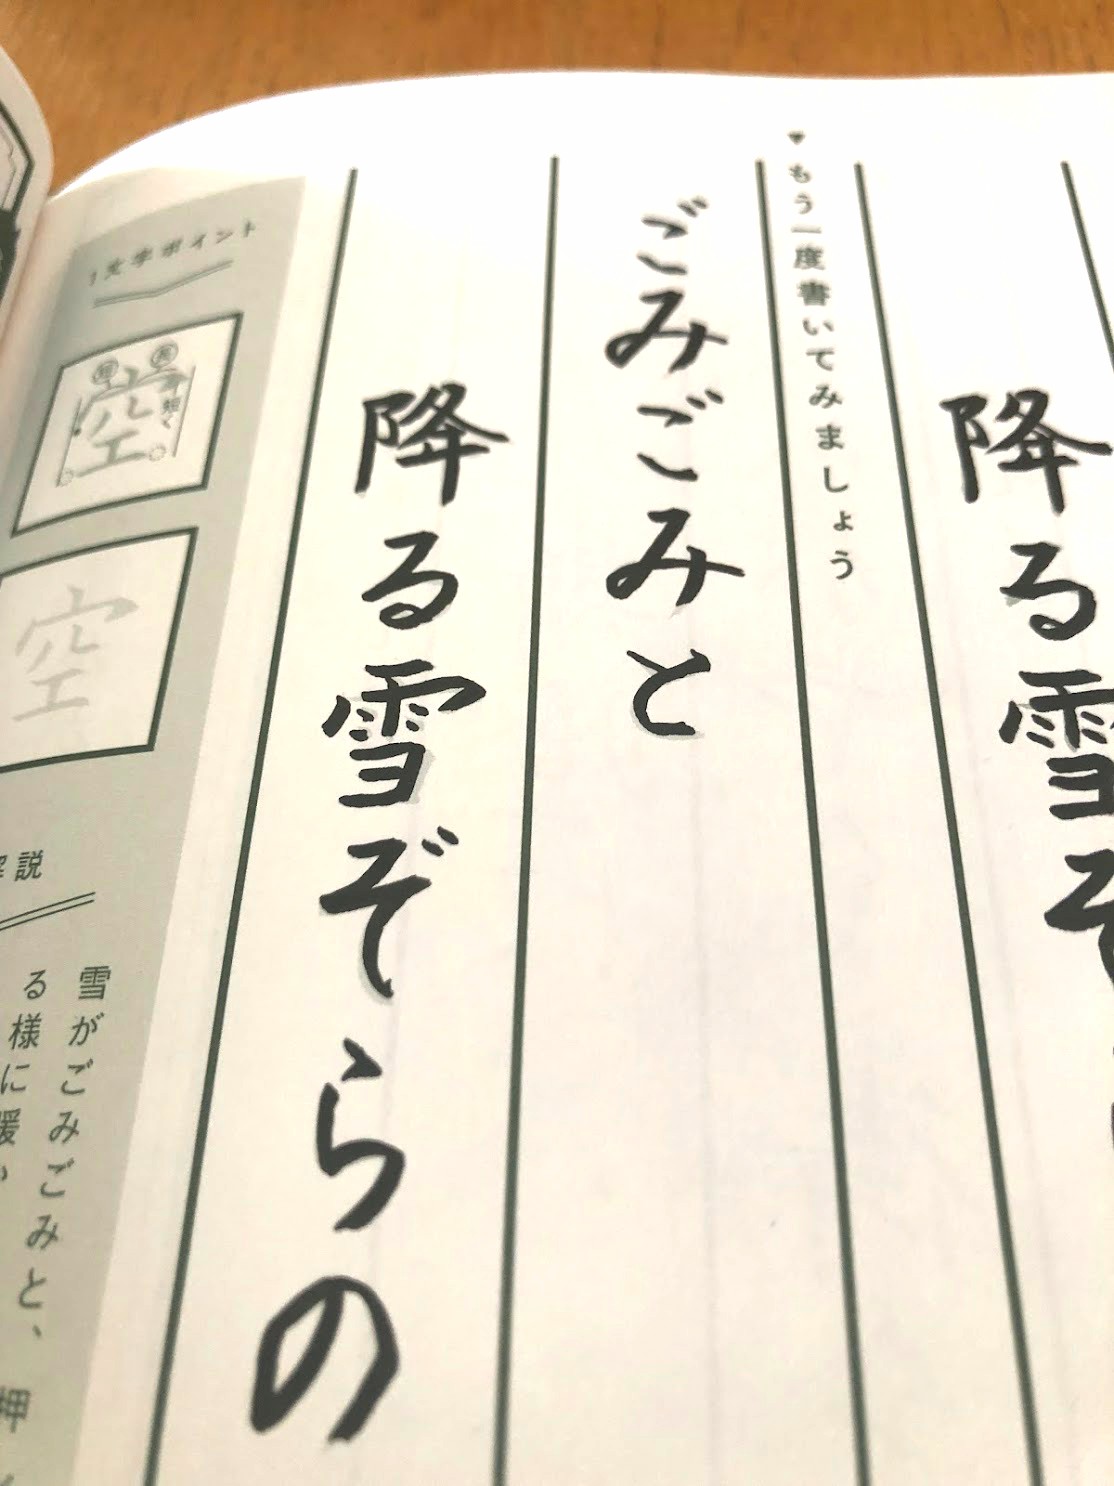 降る雪ぞ
▼もう一度書いてみましょう
ごみごみと
降る雪ぞらの
1文字ポイント
空
短く
空
解説
雪がごみごみと、
る様に